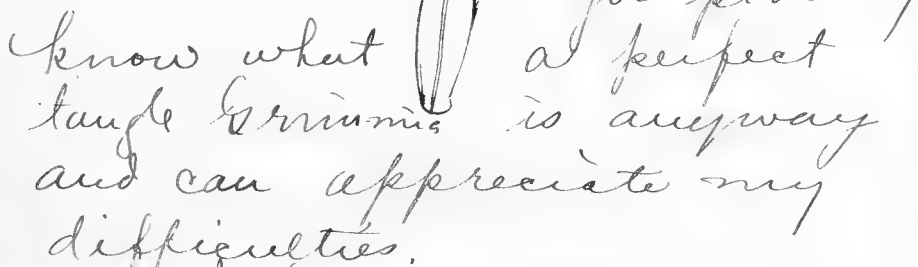 know what a perfect
tangle Grimmia is anyway
and can appreciate my
difficulties.